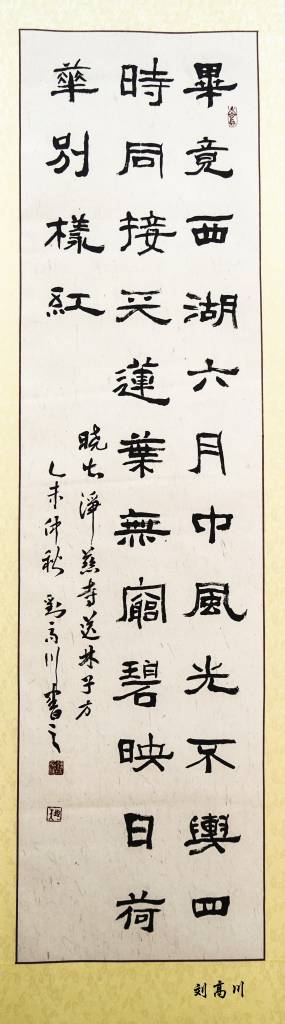 畢竟西湖六月中風光不與四
時同接天蓮葉無窮碧映日荷
華別樣紅
曉出淨慈寺送林子方
乙未仲秋劉高川書之
刘高川